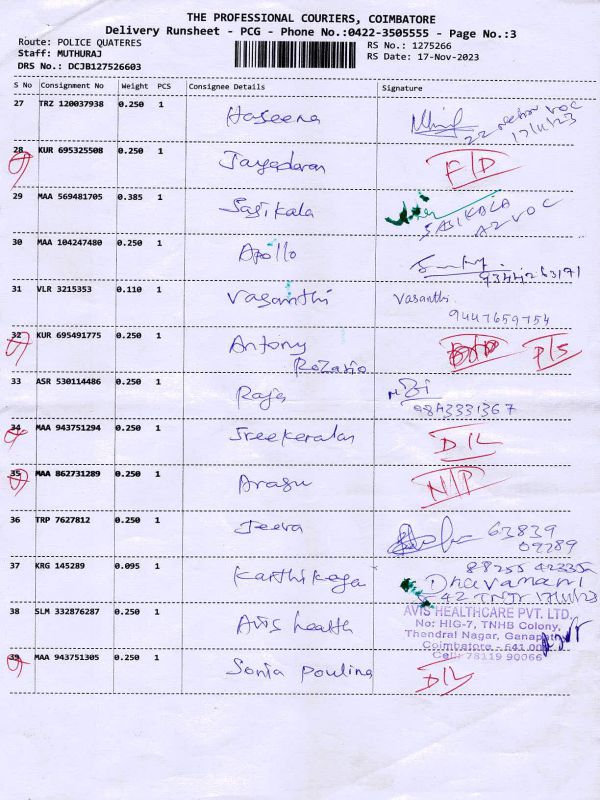 THE PROFESSIONAL COURIERS, COIMBATORE
Delivery Runsheet - PCG - Phone No.:0422-3505555 - Page No.:3
Route: POLICE QUATERES
Staff: MUTHURAJ
DRS No.: DCJB127526603
RS No.: 1275266
RS Date: 17-Nov-2023
S No Consignment No Weight PCS Consignee Details Signature
27 TRZ 120037938 0.250 1 Haseena
17/11/23
28 KUR 695325508 0.250 1 Jayadaran F/D
29 MAA 569481705 0.385 1 Sasikala SASIKALA
A2 VOC
30 MAA 104247480 0.250 1 Apollo
9344263171
31 VLR 3215353 0.110 1 Vasanthi Vasanthi
9447659754
32 KUR 695491775 0.250 1 Antony Rozario P/S
33 ASR 530114486 0.250 1 Raja
9843331367
34 MAA 943751294 0.250 1 Sreekeralas D/L
35 MAA 862731289 0.250 1 Arasu N/P
36 TRP 7627812 0.250 1 Jeeva 63839
09289
37 KRG 145289 0.095 1 Karthikeya 88255 42335
Dhavamani
17/11/23
38 SLM 332876287 0.250 1 Avis health AVIS HEALTHCARE PVT. LTD.,
No: HIG-7, TNHB Colony,
Thendral Nagar, Ganapathy
Coimbatore - 641 00
Cell: 78119 90066
39 MAA 943751305 0.250 1 Sonia Pouling D/L